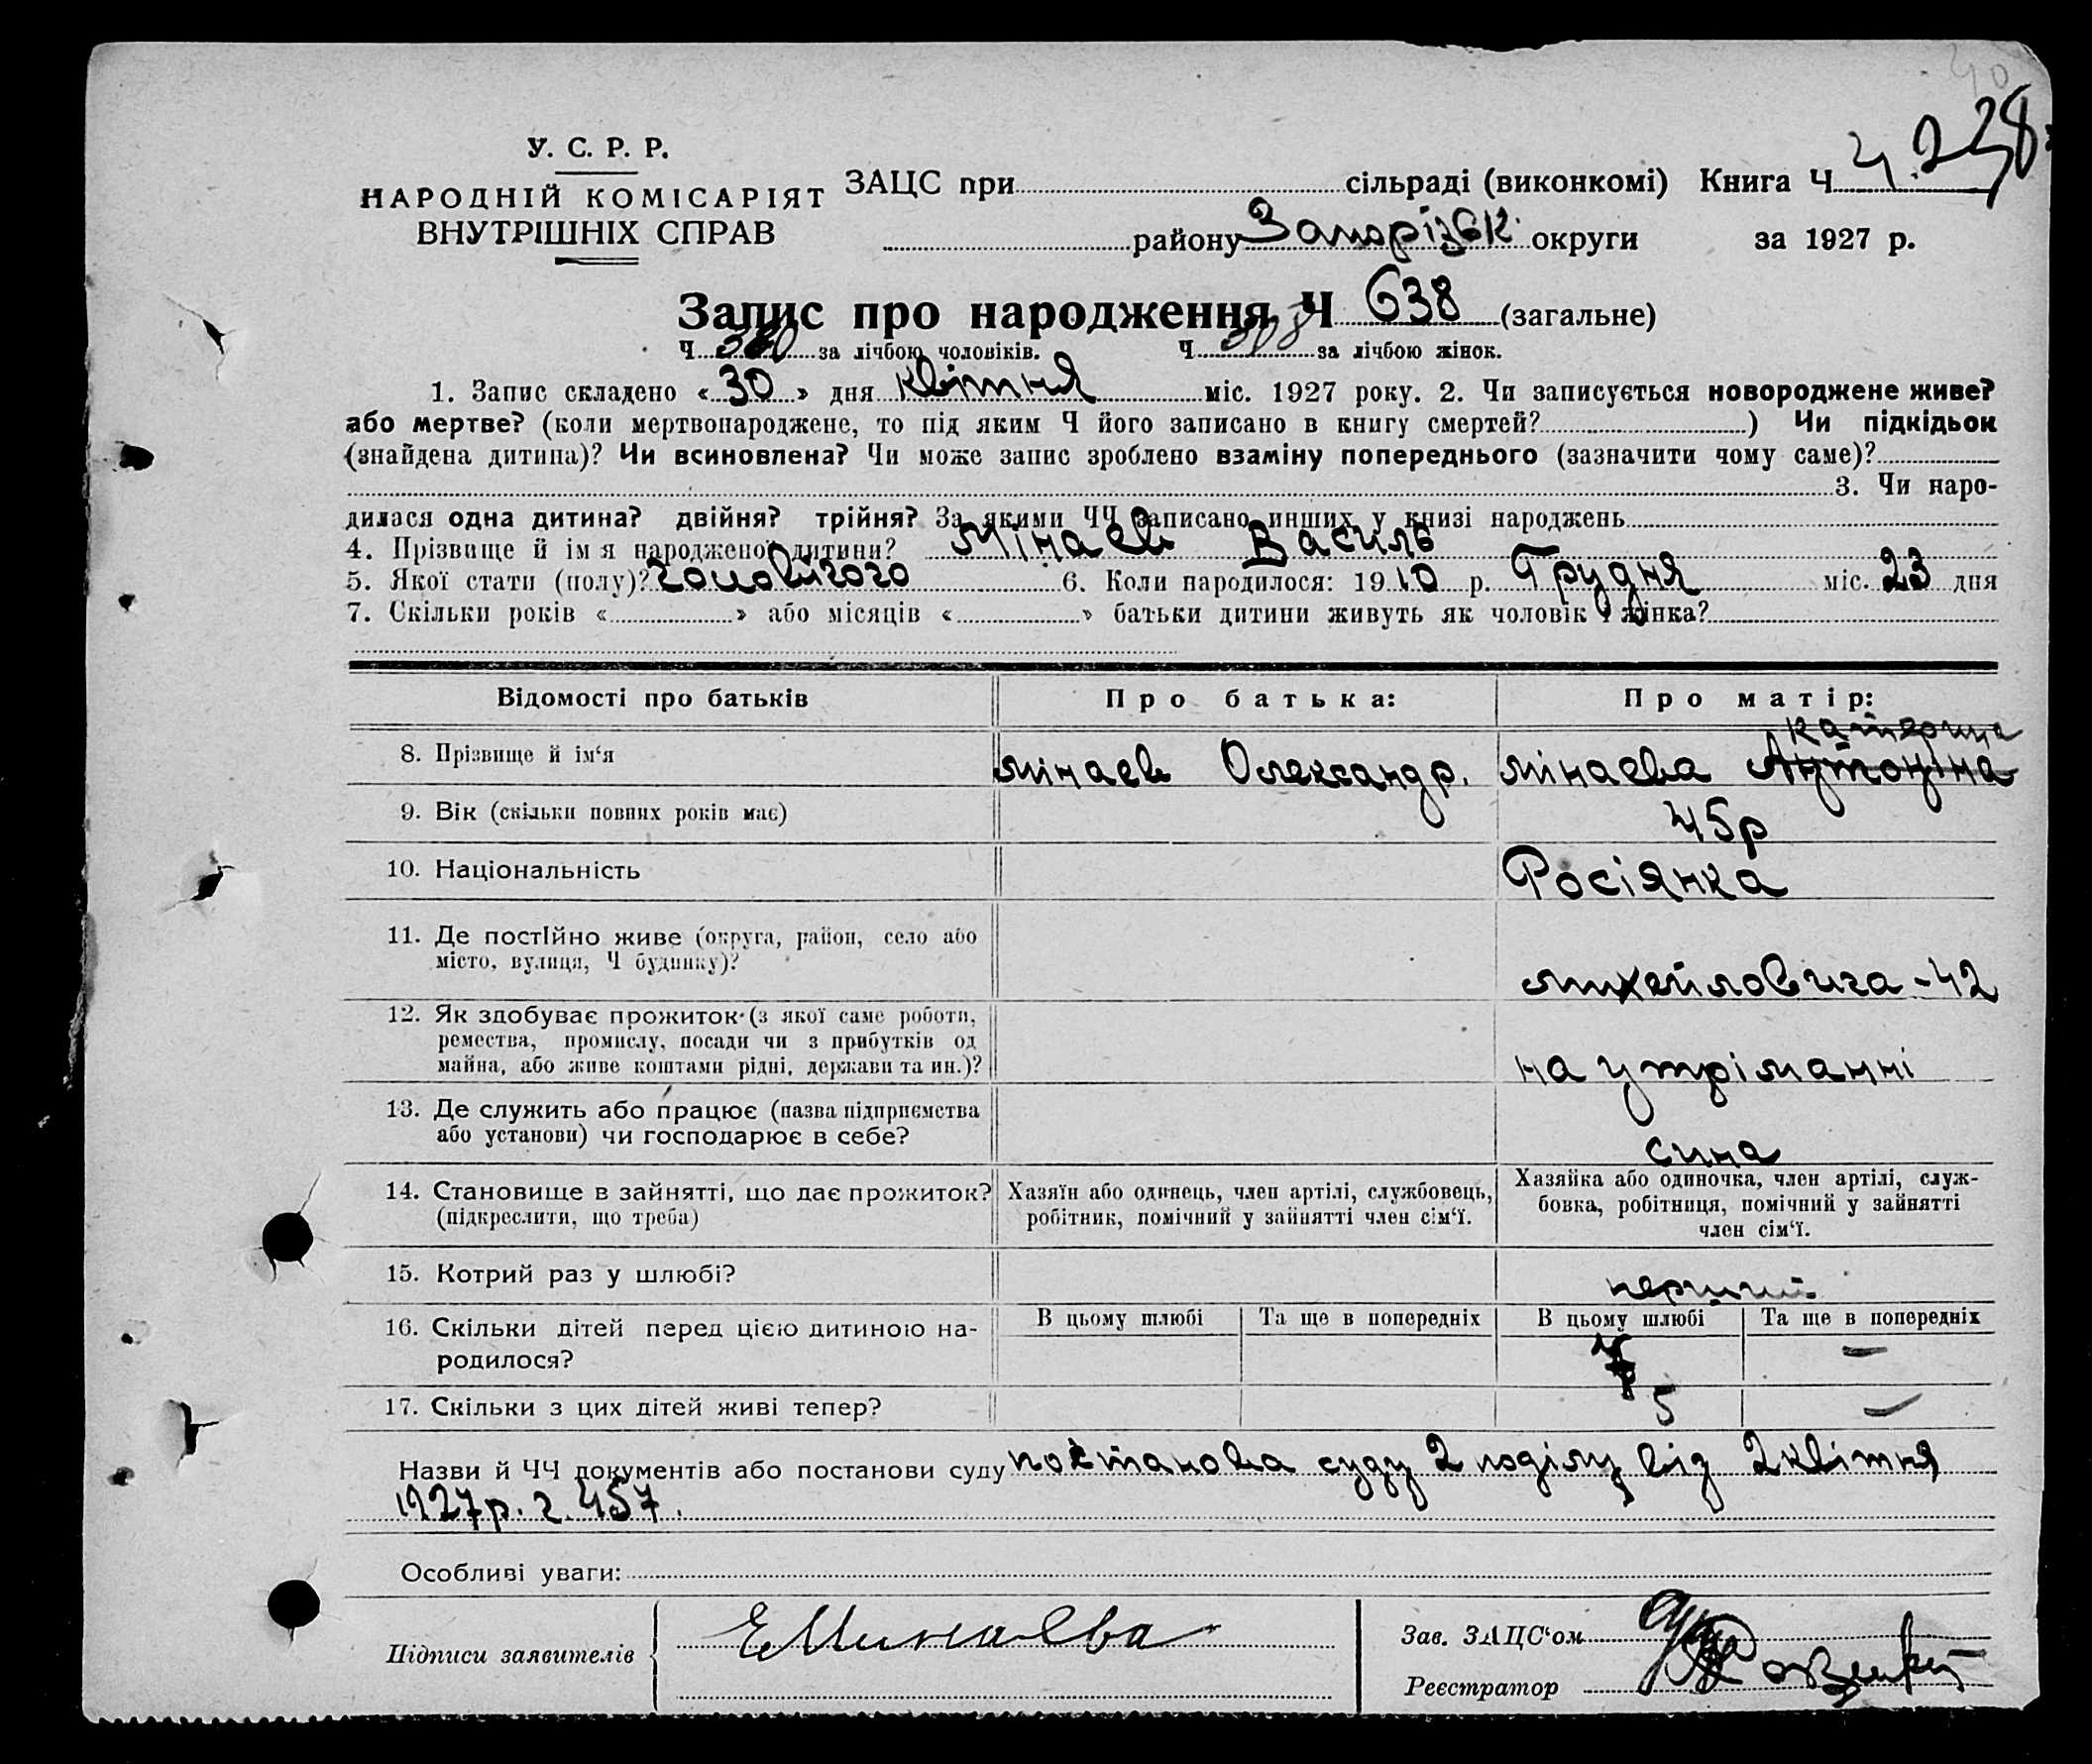 40
У. С. Р. Р.
НАРОДНІЙ КОМІСАРІЯТ
ВНУТРІШНІХ СПРАВ
ЗАЦС при сільраді (виконкомі) Книга Ч 4. 238
району Запорізьк. округи за 1927 р.
Запис про народження Ч 638 (загальне)
Ч 330 за лічбою чоловіків. Ч 308 за лічбою жінок.
1. Запис складено «30» дня квітня міс. 1927 року. 2. Чи записується новороджене живе?
або мертве? (коли мертвонароджене, то під яким Ч його записано в книгу смертей? ) Чи підкідьок
(знайдена дитина)? Чи всиновлена? Чи може запис зроблено взаміну попереднього (зазначити чому саме)?
3. Чи наро-
дилася одна дитина? двійня? трійня? За якими ЧЧ записано инших у книзі народжень
4. Прізвище й ім я народженої дитини? Мінаєв Василь
5. Якої стати (полу)? чоловічого 6. Коли народилося: 1910 р. Грудня міс. 23 дня
7. Скільки років « » або місяців « » батьки дитини живуть як чоловік і жінка?
Відомості про батьків Про батька: Про матір:
Катерина
8. Прізвище й ім‘я Мінаєв Олександр. Мінаєва Антоніна
9. Вік (скільки повних років має) 45р
10. Національність Росіянка
11. Де постійно живе (округа, район, село або
місто, вулиця, Ч будинку)? Михайловича - 42
12. Як здобуває прожиток (з якої саме роботи,
ремества, промислу, посади чи з прибутків од
майна, або живе коштами рідні, держави та ин.)? на утріманні
13. Де служить або працює (назва підприємства
або установи) чи господарює в себе? сина
14. Становище в зайнятті, що дає прожиток? Хазяїн або одинець, член артілі, службовець, Хазяйка або одиночка, член артілі, служ-
(підкреслити, що треба) робітник, помічний у зайнятті член сім‘ї. бовка, робітниця, помічний у зайнятті
член сім‘ї.
15. Котрий раз у шлюбі? перший
16. Скільки дітей перед цією дитиною на- В цьому шлюбі Та ще в попередніх В цьому шлюбі Та ще в попередніх
родилося? 7 —
17. Скільки з цих дітей живі тепер? 5 —
Назви й ЧЧ документів або постанови суду постанова суду 2 поділу від 2 квітня
1927р. ч. 457.
Особливі уваги:
Підписи заявителів ЕМинаева
Зав. ЗАЦС‘ом
Реєстратор